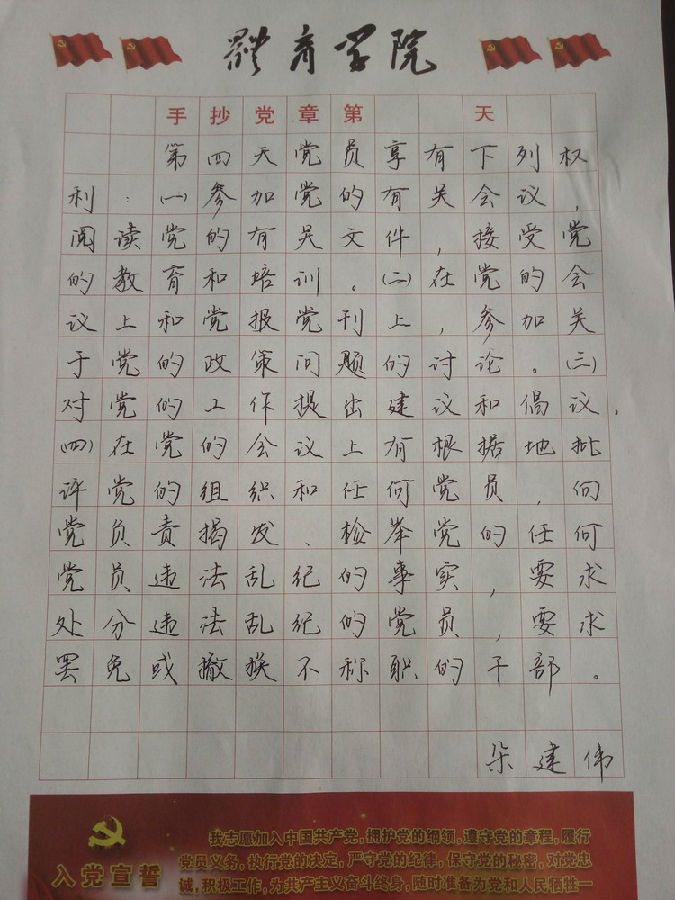 體育学院
手抄党章第 天
第四天党员享有下列权
利：㈠参加党的有关会议，
阅读党的有关文件，接受党
的教育和培训。㈡在党的会
议上和党报党刊上，参加关
于党的政策问题的讨论。㈢
对党的工作提出建议和倡议，
㈣在党的会议上有根据地批
评党的组织和任何党员，向
党负责揭发、检举党的任何
党员违法乱纪的事实，要求
处分违法乱纪的党员，要求
罢免或撤换不称职的干部。
建伟
入党宣誓
我志愿加入中国共产党，拥护党的纲领，遵守党的章程，履行
党员义务，执行党的决定，严守党的纪律，保守党的秘密，对党忠
诚，积极工作，为共产主义奋斗终身，随时准备为党和人民牺牲一